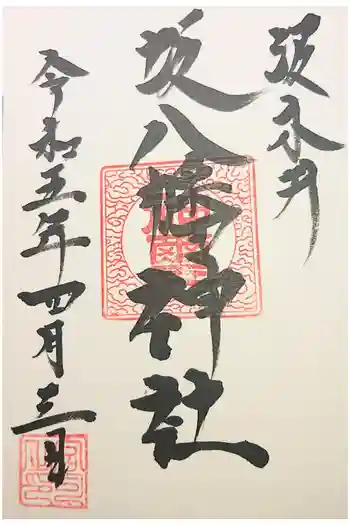 波木井
坂八幡神社
令和五年四月三日